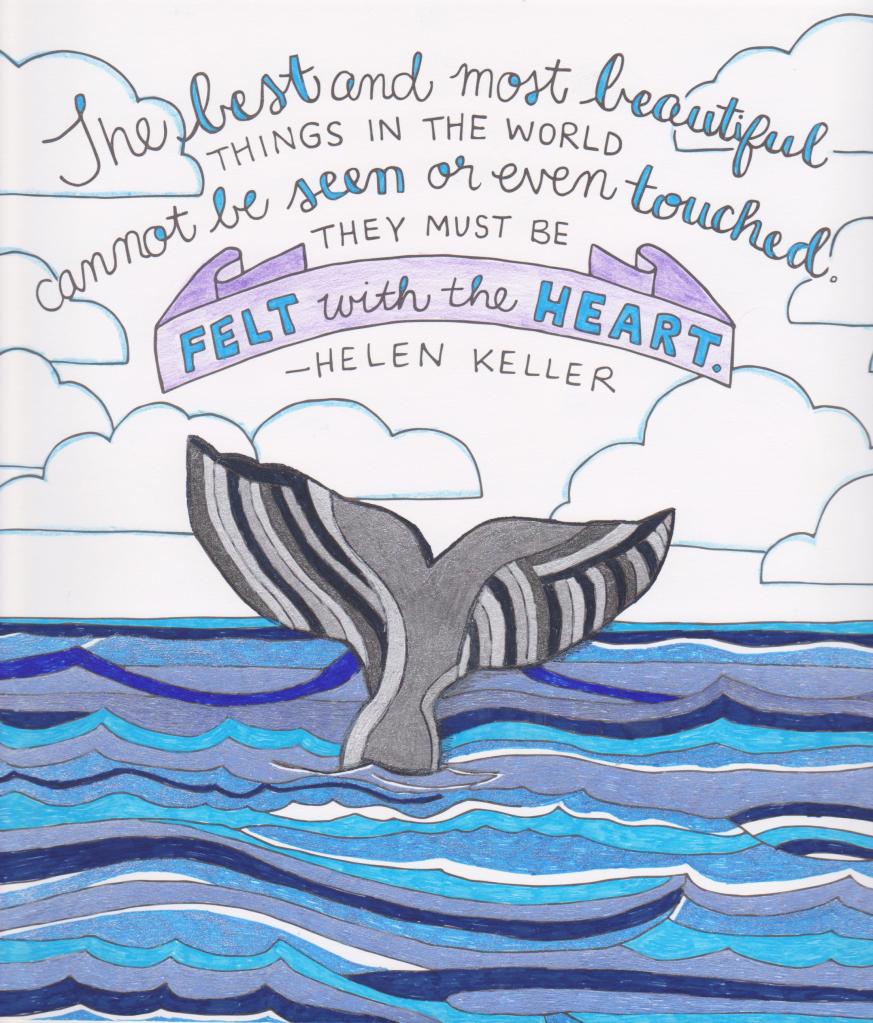 The best and most beautiful
THINGS IN THE WORLD
cannot be seen or even touched.
THEY MUST BE
FELT with the HEART.
–HELEN KELLER